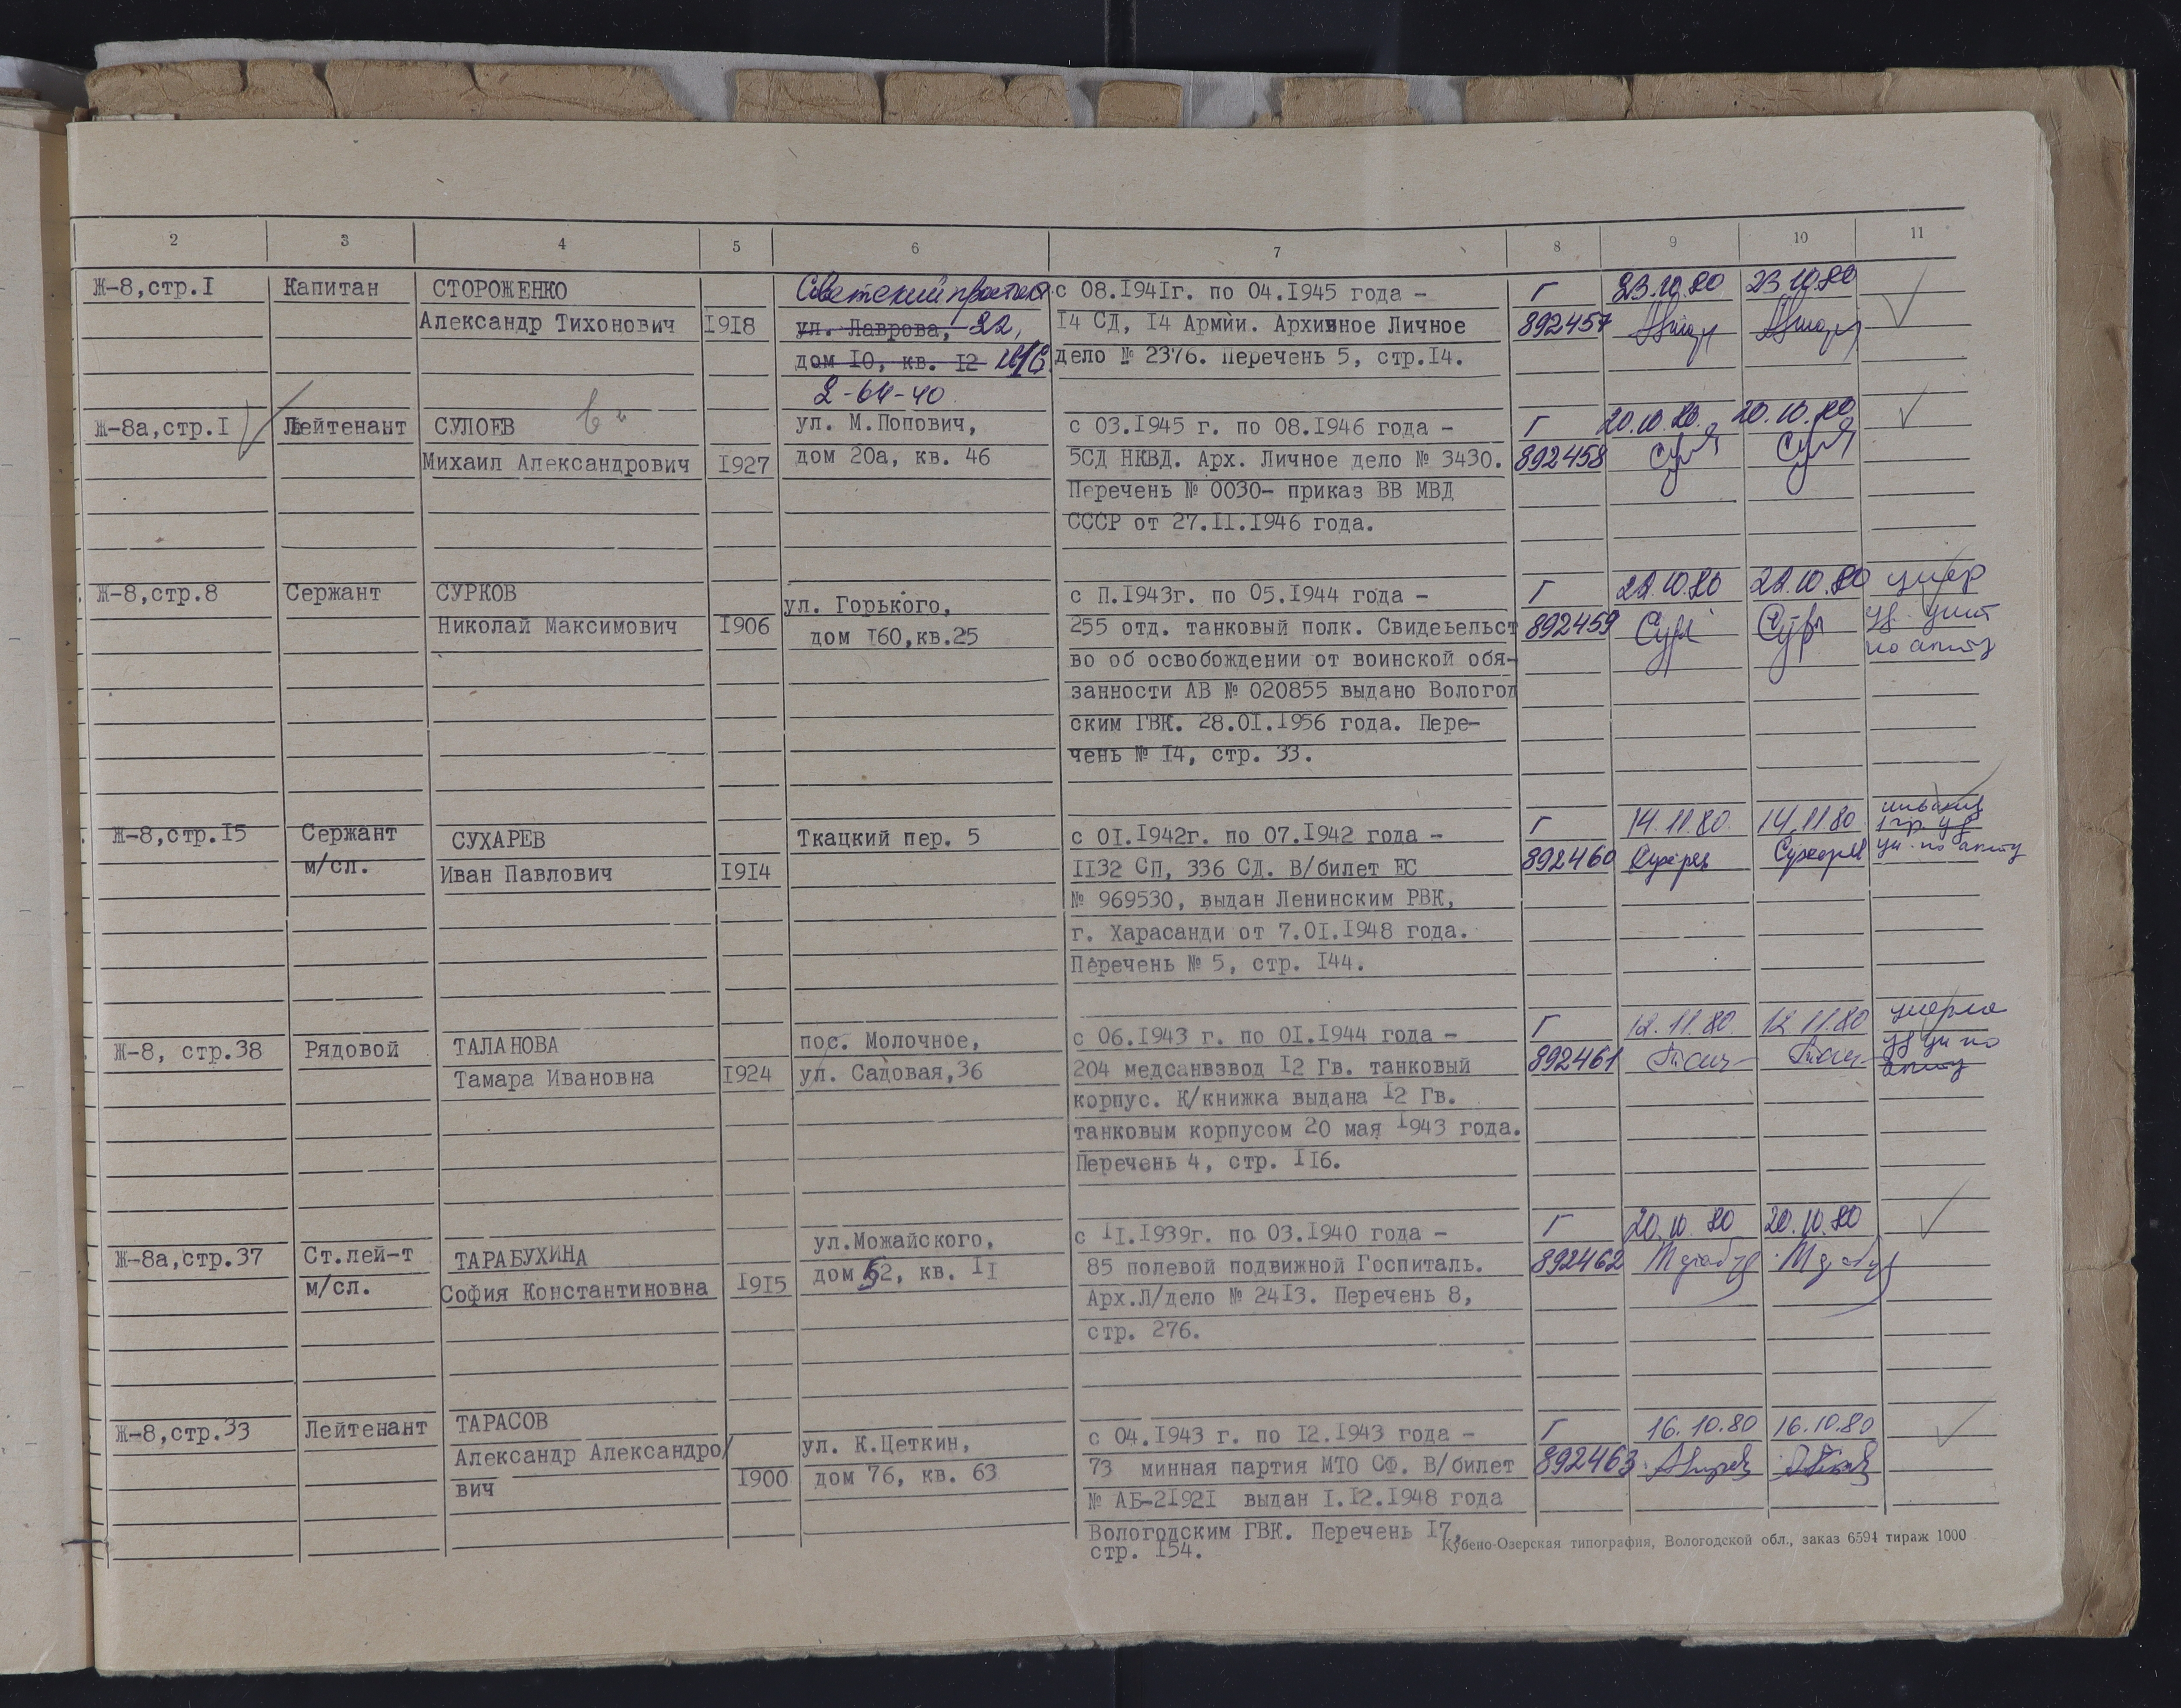 2 3 4 5 6 7 8 9 10 11
Ж-8,стр.I Капитан СТОРОЖЕНКО Советский с 08.I94Iг. по 04.I945 года – Г 23.10.80 23.10.80
Александр Тихонович I9I8 ул. Лаврова, 22, I4 СД, I4 Армии. Архивное Личное 892457
дом I0, кв. I2 дело № 2376. Перечень 5, стр.I4.
2-64-40
Ж-8а,стр.I Лейтенант СУЛОЕВ ул. М.Попович, с 03.I945 г. по 08.I946 года – Г 20.10.80. 20.10.80
Михаил Александрович I927 дом 20а, кв. 46 5СД НКВД. Арх. Личное дело № 3430. 892458
Перечень № 0030– приказ ВВ МВД
СССР от 27.II.I946 года.
Ж-8,стр.8 Сержант СУРКОВ с П.I943г. по 05.I944 года – Г 22.10.80 22.10.80 умер
Николай Максимович I906 ул. Горького, 255 отд. танковый полк. Свидеьельст 892459
дом I60,кв.25 во об освобождении от воинской обя-
занности АВ № 020855 выдано Вологод
ским ГВК. 28.0I.I956 года. Пере-
чень № I4, стр. 33.
Ж-8,стр.I5 Сержант СУХАРЕВ Ткацкий пер. 5 с 0I.I942г. по 07.I942 года – Г 14.11.80. 14.11.80
м/сл. Иван Павлович I9I4 II32 СП, 336 СД. В/билет ЕС 892460
№ 969530, выдан Ленинским РВК,
г. Харасанди от 7.0I.I948 года.
Перечень № 5, стр. I44.
Ж-8, стр.38 Рядовой ТАЛАНОВА пос. Молочное, с 06.I943 г. по 0I.I944 года – Г 12.11.80. 12.11.80 умерла
Тамара Ивановна I924 ул. Садовая,36 204 медсанвзвод I2 Гв. танковый 892461
корпус. К/книжка выдана I2 Гв.
танковым корпусом 20 мая I943 года.
Перечень 4, стр. II6.
Ж-8а,стр.37 Ст.лей-т ТАРАБУХИНА ул.Можайского, с II.I939г. по 03.I940 года – Г 20.10.80 20.10.80
м/сл. София Константиновна I9I5 дом 52, кв. II 85 полевой подвижной Госпиталь. 892462
Арх.Л/дело № 24I3. Перечень 8,
стр. 276.
Ж-8,стр.33 Лейтенант ТАРАСОВ с 04.I943 г. по I2.I943 года – Г 16.10.80 16.10.80
Александр Александро/ I900 ул. К.Цеткин, 73 минная партия МТО СФ. В/билет 892463
вич дом 76, кв. 63 № АБ-2I92I выдан I.I2.I948 года
Вологодским ГВК. Перечень I7,
стр. I54.
Кубено-Озерская типография, Вологодской обл., заказ 6594 тираж 1000